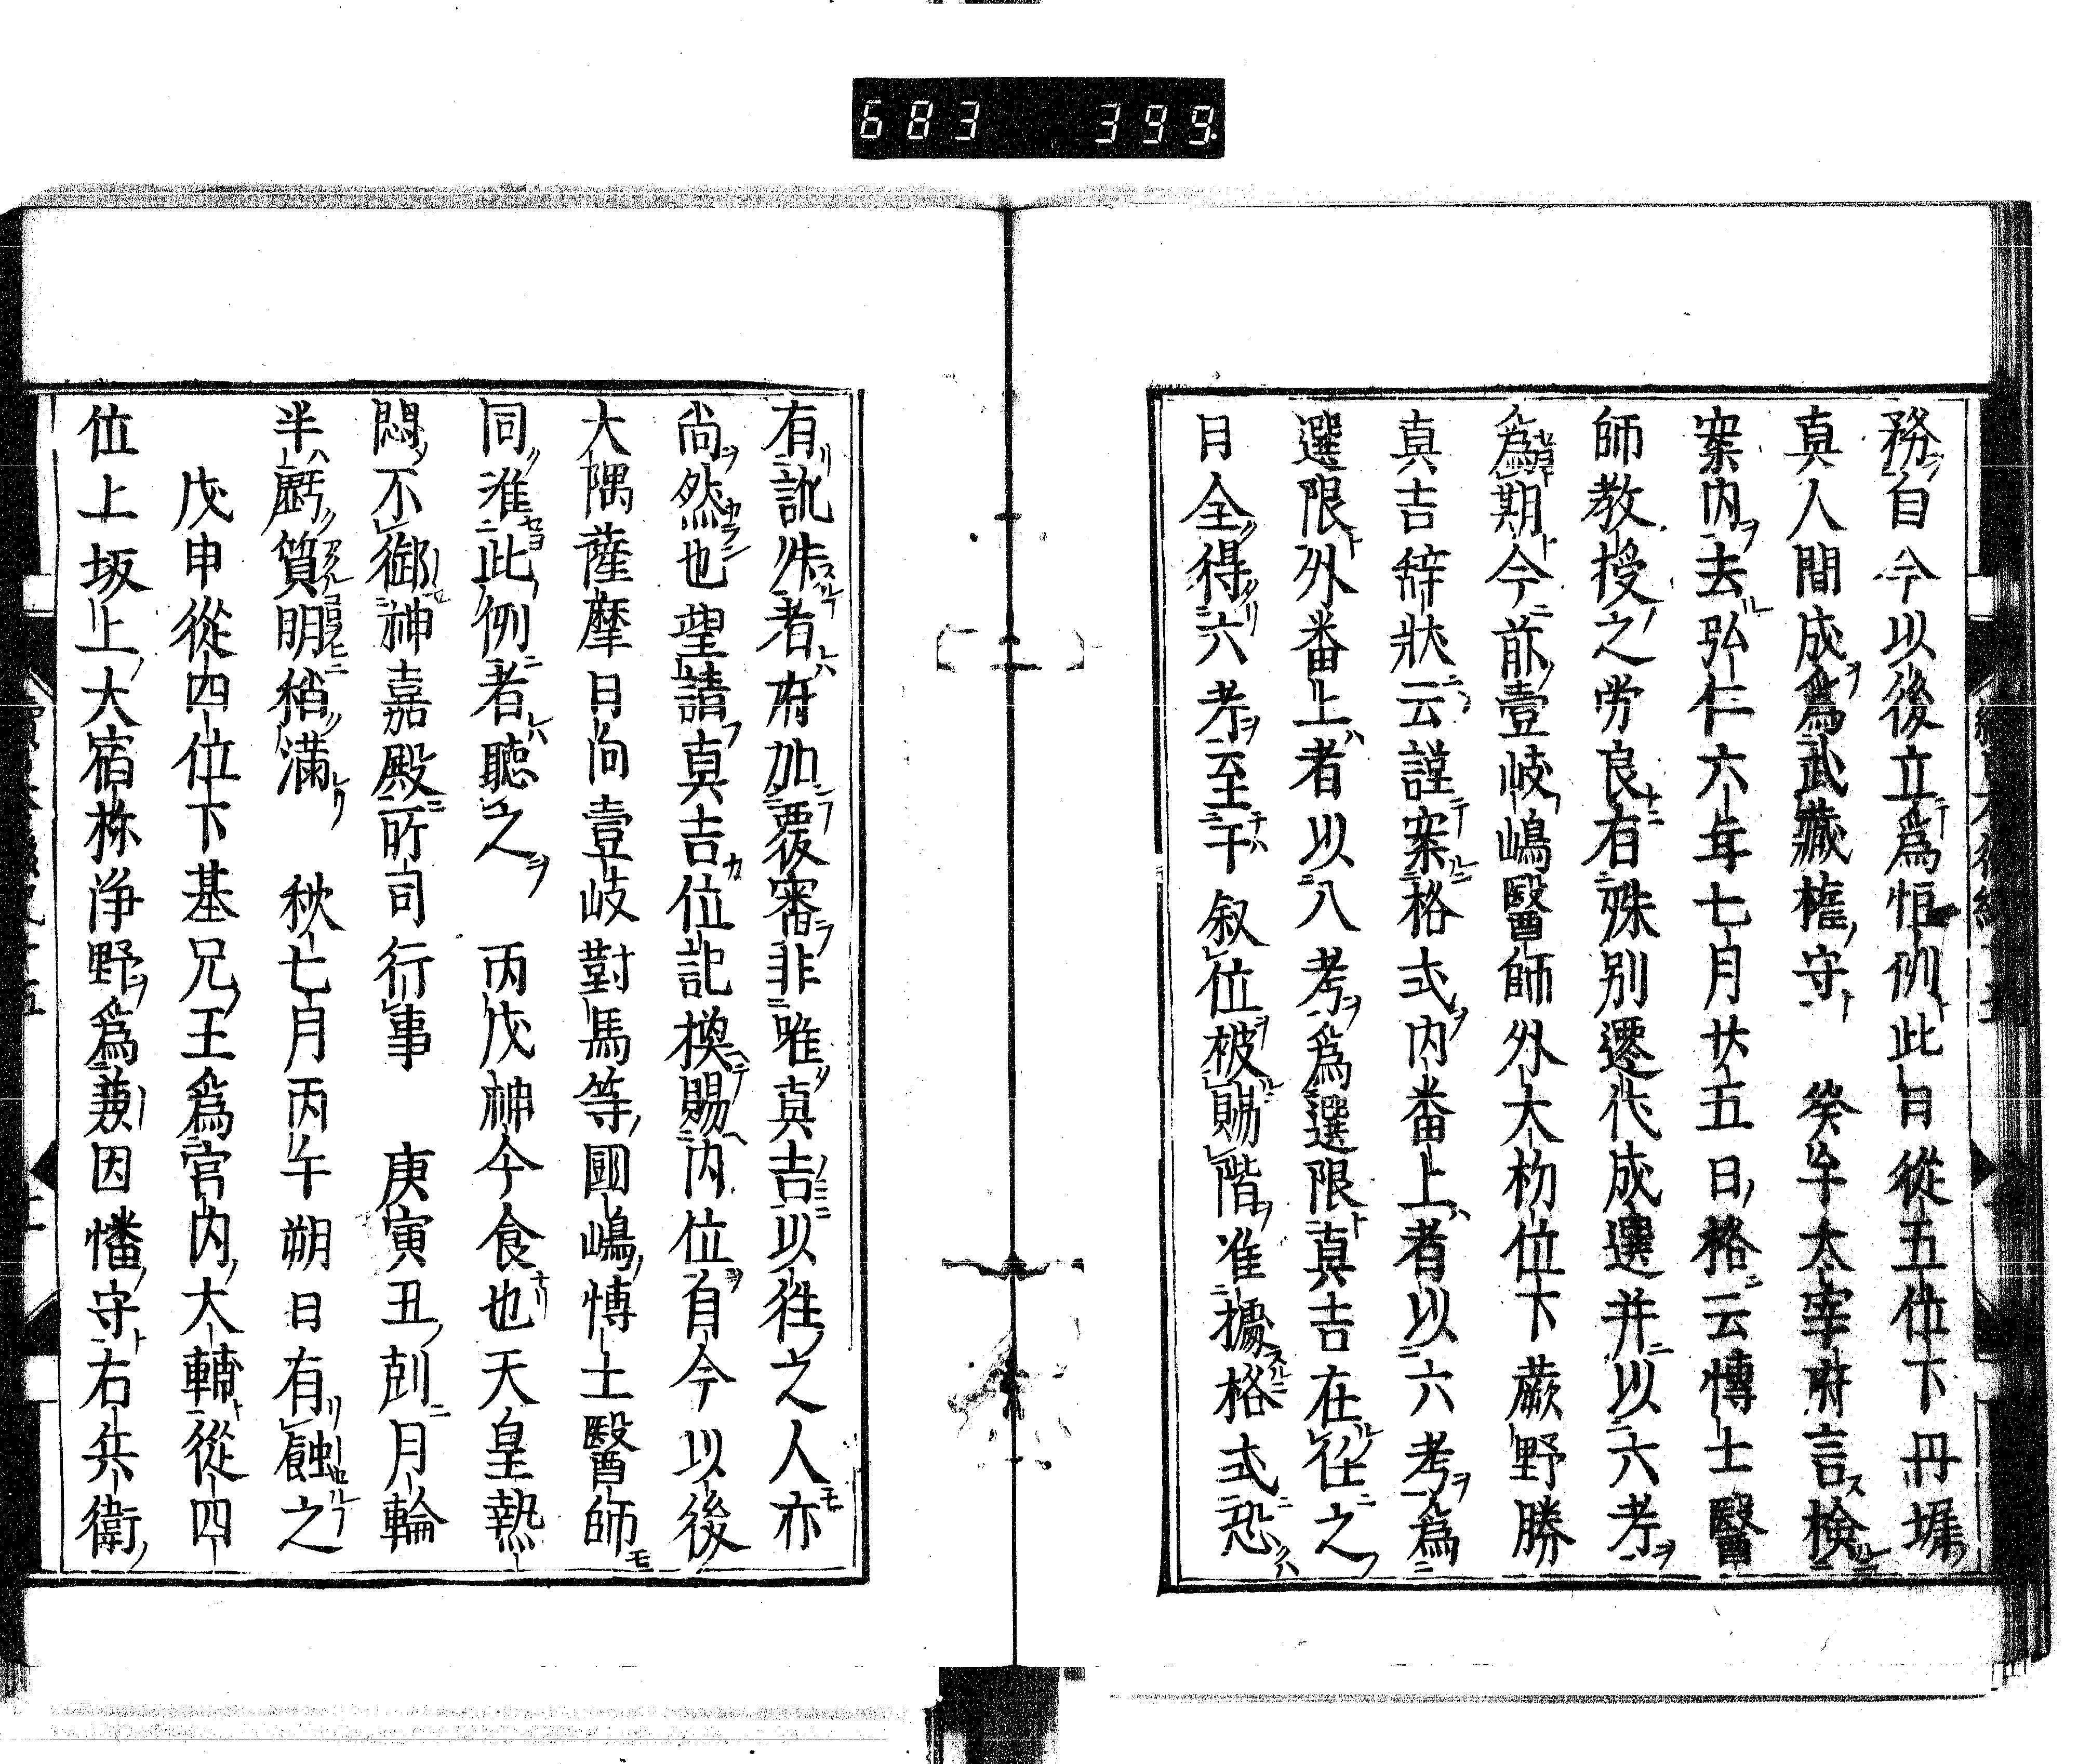 683 399
務自今以後立爲恒例此日從五位下丹墀
真人間成爲武藏權守 癸午太宰府言檢
案内去弘仁六年七月廿五日格云博士醫
師教授之労良有殊別遷代成選并以六考
爲期今前壹岐嶋醫師外大初位下蕨野勝
真吉辞狀云謹案格式内番上者以六考爲
選限外番上者以八考爲選限真吉在任之
日全得六考至干叙位被賜階准據格式恐
有訛殊者府加覆審非唯真吉以往之人亦
尚然也望請真吉位記換賜内位自今以後
大隅薩摩日向壹岐對馬等國嶋博士醫師
同准此例者聽之 丙戌神今食也天皇熱
悶不御神嘉殿所司行事 庚寅丑剋月輪
半虧質明稍滿 秋七月丙午朔日有蝕之
戊申從四位下基兄王爲宮内大輔從四
位上坂上大宿祢浄野爲兼因幡守右兵衛